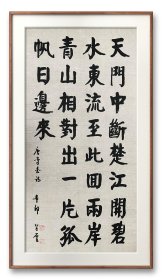 天門中斷楚江開碧
水東流至此回兩岸
青山相對出一片孤
帆日邊來